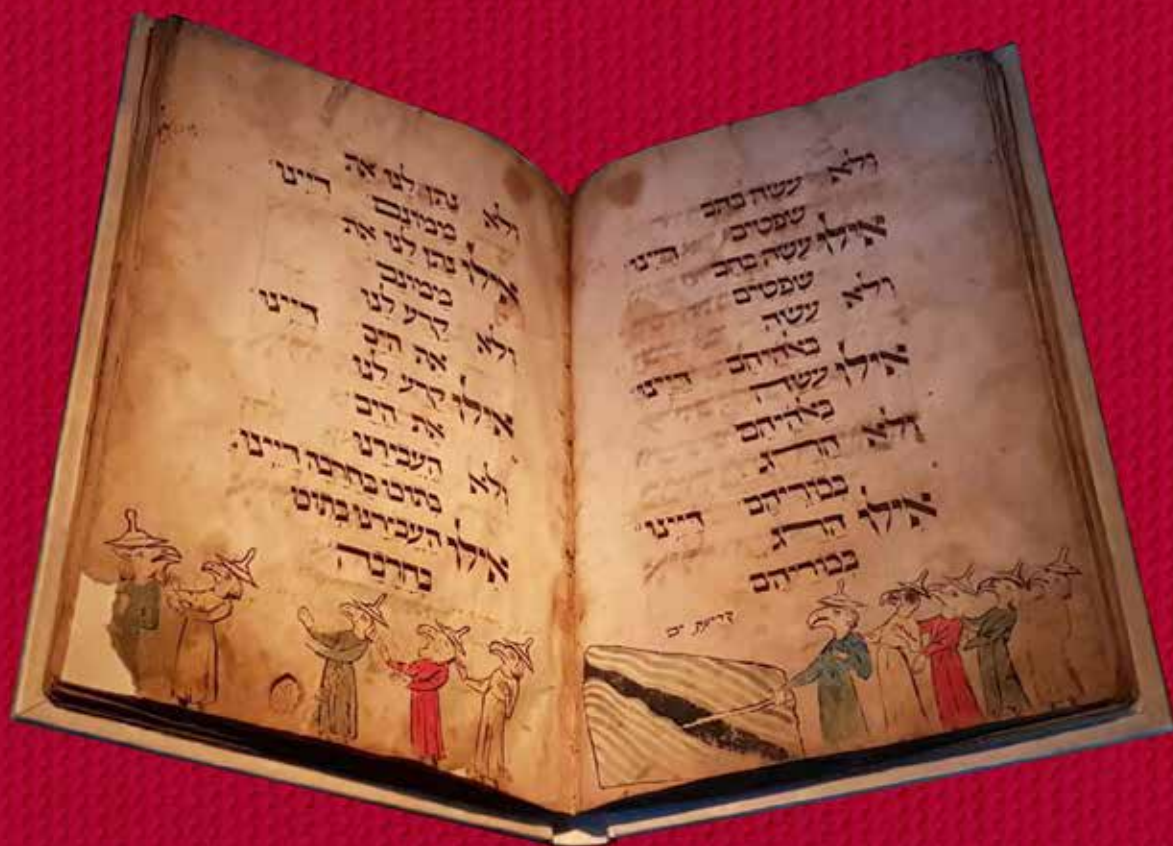 ולא עשה בהם
שפטים דיינו
אילו עשה בהם
שפטים
ולא עשה
באלהיהם דיינו
אילו עשה
באלהיהם
ולא הרג
בכוריהם דיינו
אילו הרג
בכוריהם
קריעת ים
ולא נתן לנו את
ממונם דיינו
אילו נתן לנו את
ממונם
ולא קרע לנו
את הים דיינו
אילו קרע לנו
את הים
ולא העבירנו
בתוכו בחרבה דיינו
אילו העבירנו בתוכו
בחרבה